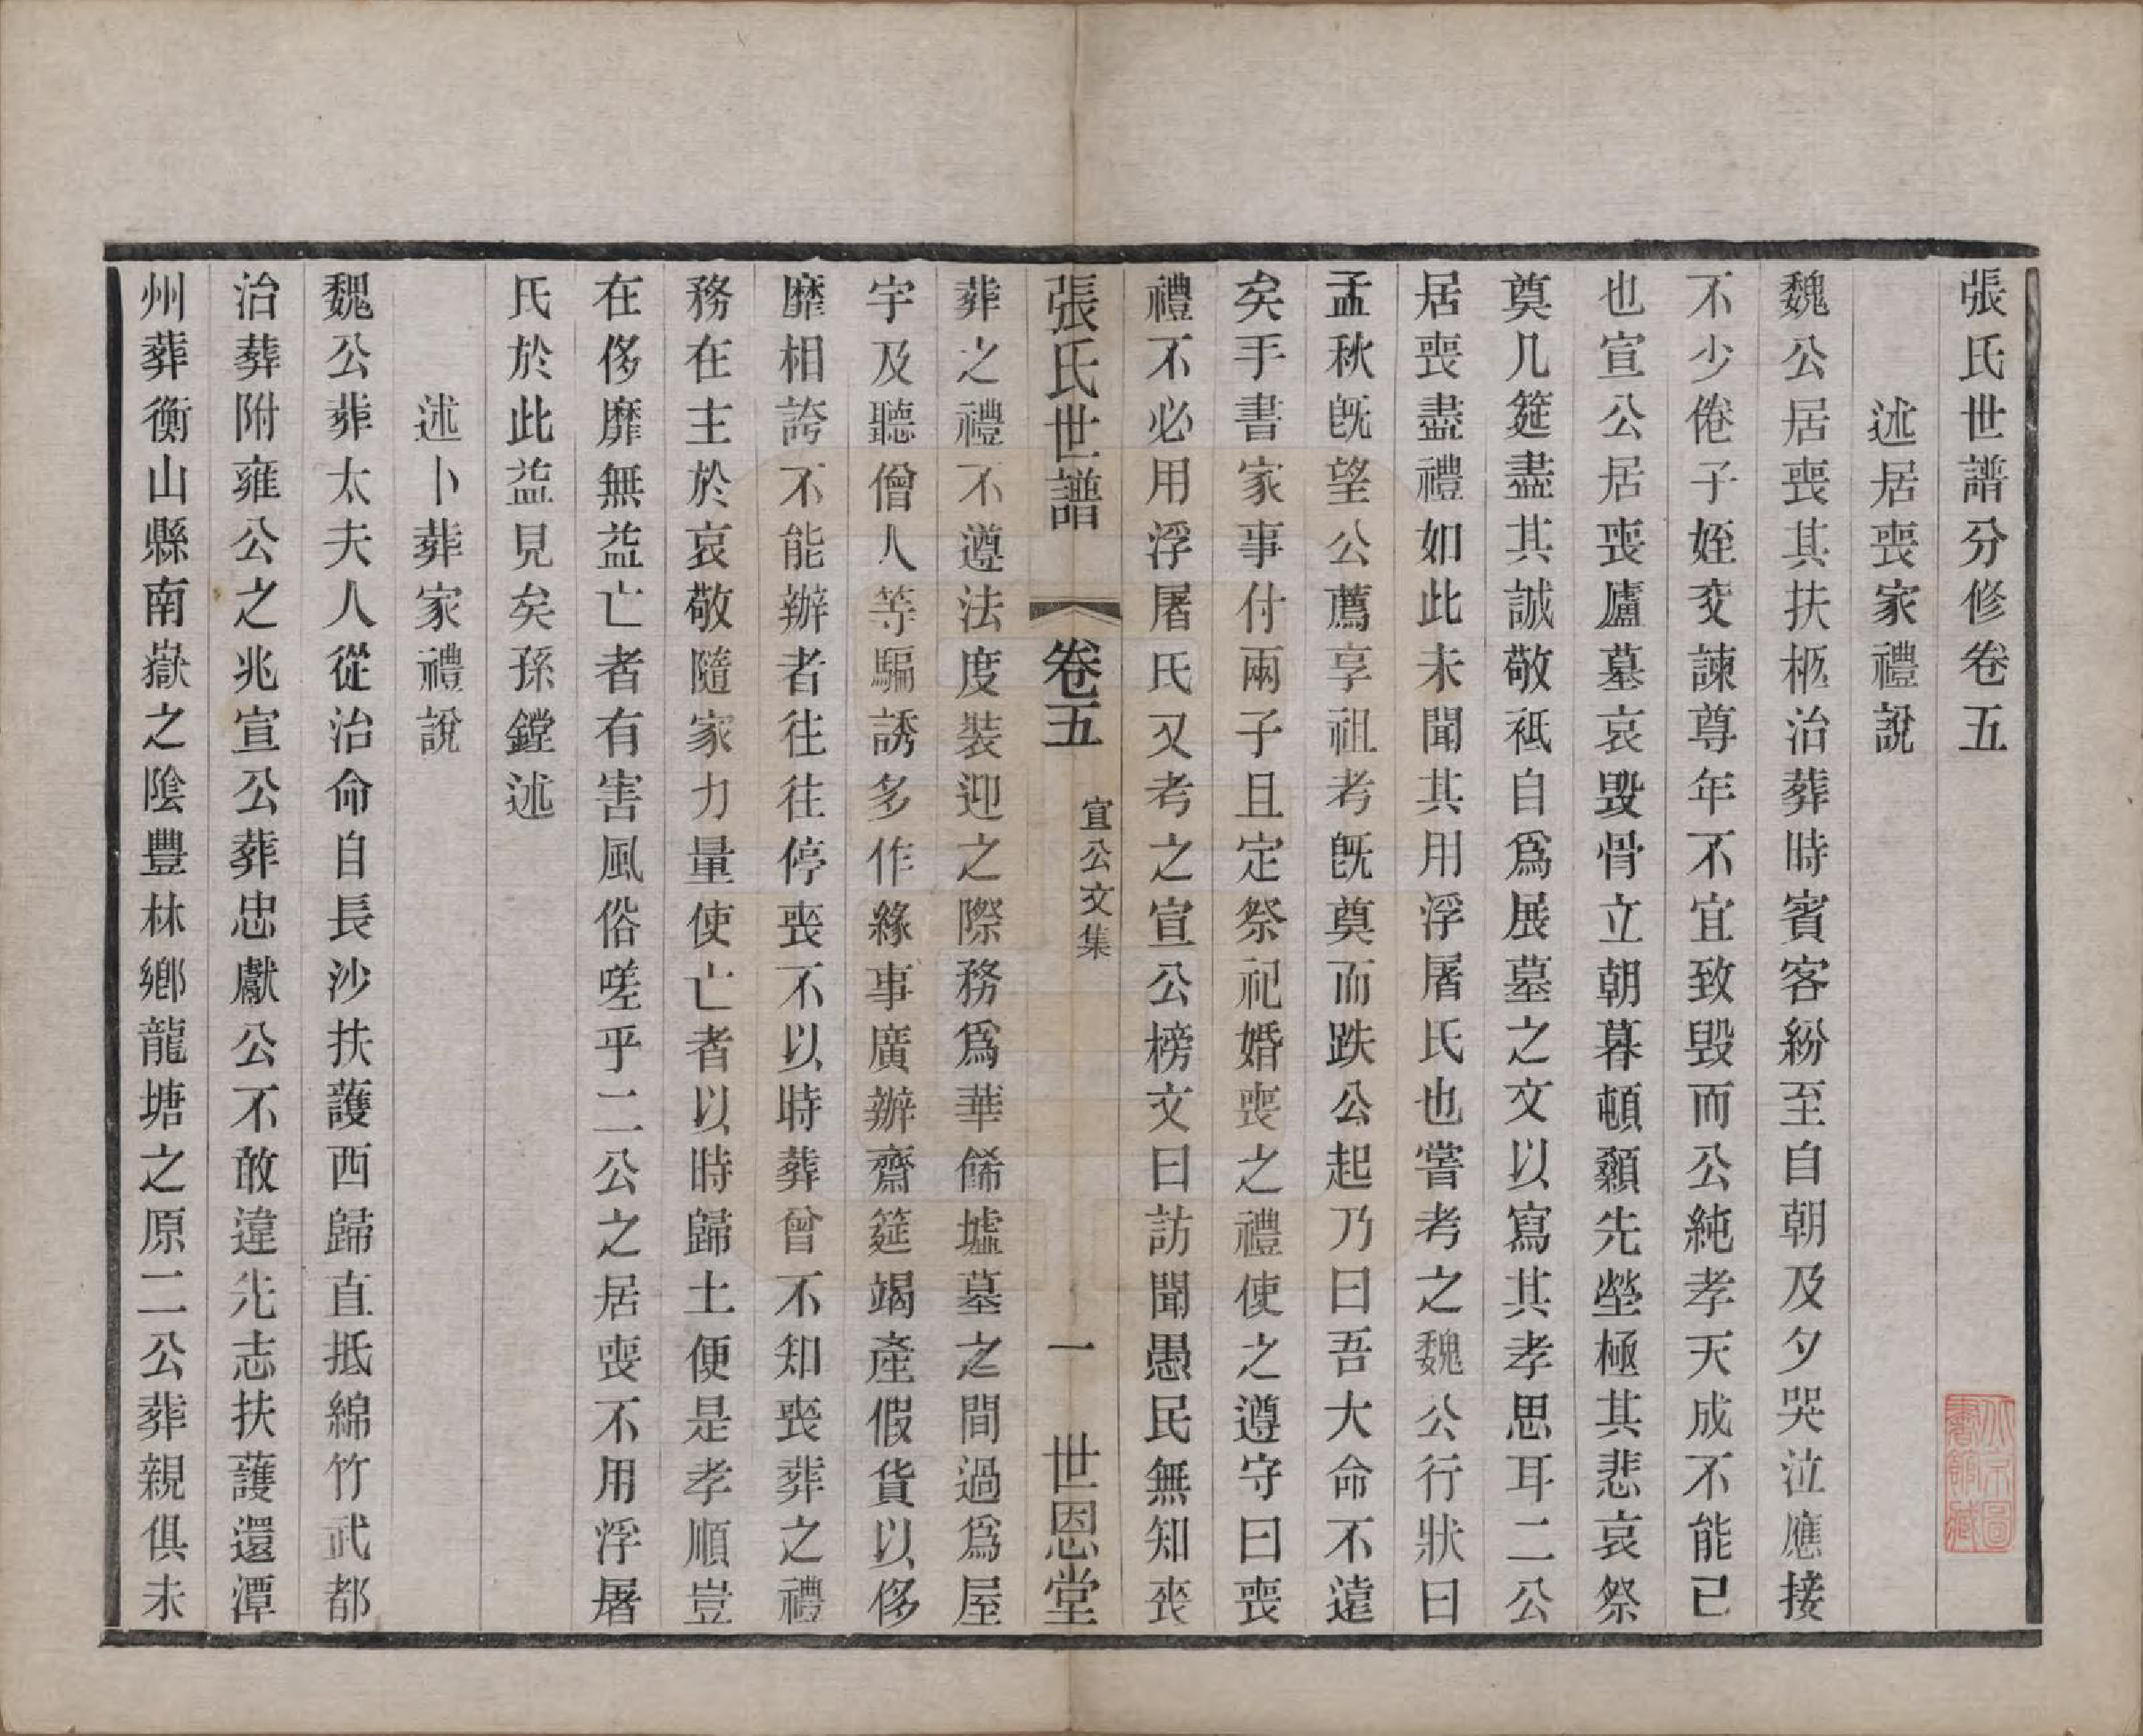 張氏世譜分修卷五
述居喪家禮說
魏公居喪其扶柩治葬時賓客紛至自朝及夕哭泣應接
不少倦子姪交諫尊年不宜致毀而公純孝天成不能已
也宣公居喪廬墓哀毀骨立朝暮頓顙先塋極其悲哀祭
奠几筵盡其誠敬祗自爲展墓之文以寫其孝思耳二公
居喪盡禮如此未聞其用浮屠氏也嘗考之魏公行狀曰
孟秋旣望公薦享祖考旣奠而跌公起乃曰吾大命不遠
矣手書家事付兩子且定祭祀婚喪之禮使之遵守曰喪
禮不必用浮屠氏又考之宣公榜文曰訪聞愚民無知喪
張氏世譜
卷五
宣公文集
一
世恩堂
葬之禮不遵法度裝迎之際務爲華餙墟墓之間過爲屋
宇及聽僧人等騙誘多作緣事廣辦齋筵竭產假貨以侈
靡相誇不能辦者往往停喪不以時葬曾不知喪葬之禮
務在主於哀敬隨家力量使亡者以時歸土便是孝順豈
在侈靡無益亡者有害風俗嗟乎二公之居喪不用浮屠
氏於此益見矣孫鏜述
述卜葬家禮說
魏公葬太夫人從治命自長沙扶護西歸直抵綿竹武都
治葬附雍公之兆宣公葬忠獻公不敢違先志扶護還潭
州葬衡山縣南嶽之陰豐林鄉龍塘之原二公葬親俱未